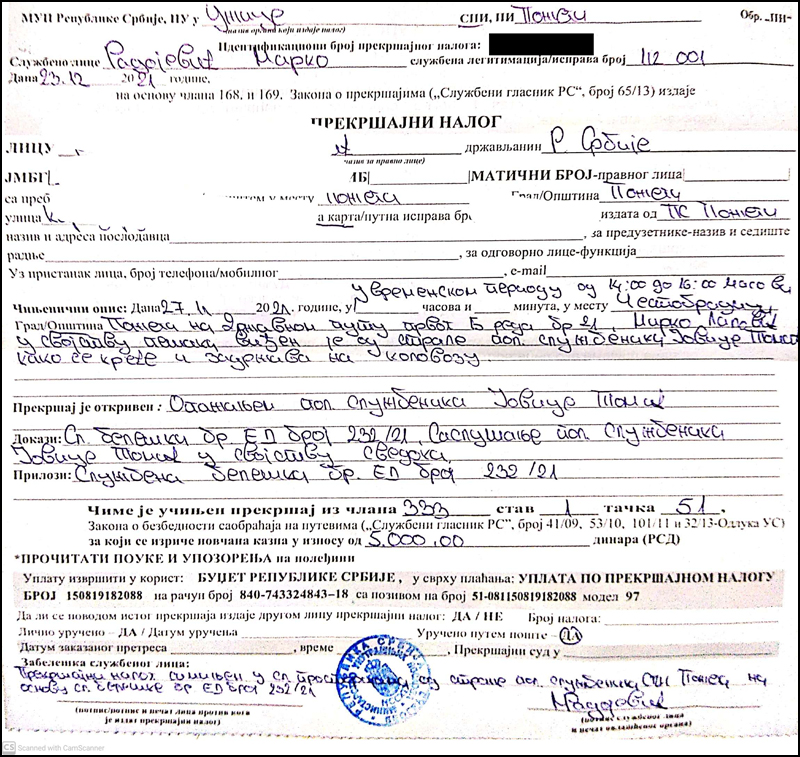 МУП Републике Србије, ПУ у Ужице СПИ, ПИ Пожега Обр. „ПН“
(назив органа који издаје налог)
Идентификациони број прекршајног налога:
Службено лице Радојевић Марко службена легитимација/исправа број 112 001
Дана 23.12 2021 године,
на основу члана 168. и 169. Закона о прекршајима („Службени гласник РС“, број 65/13) издаје
ПРЕКРШАЈНИ НАЛОГ
ЛИЦУ држављанин Р Србије
(назив за правно лице)
ЈМБГ МАТИЧНИ БРОЈ-правног лица
са преб местом у месту Пожега Град/Општина Пожега
улица К а карта/путна исправа бр издата од ПС Пожега
назив и адреса послодавца , за предузетнике-назив и седиште
радње , за одговорно лице-функција
Уз пристанак лица, број телефона/мобилног , e-mail
у временском периоду од 14:00 до 16:00 часова
Чињенични опис: Дана 27.11 2021. године, у часова и минута, у месту Честобродица,
Град/Општина Пожега на државном путу првог Б реда бр 21, Мирко
у својству пешака виђен је од стране пол. службеника Јовице Томић
како се креће и задржава на коловозу.
Прекршај је откривен : Опажањем пол. службеника Јовице Томић
Докази: Сл. белешка бр. ЕД број 232/21, Саслушање пол. службеника
Јовице Томић у својству сведока,
Прилози: Службена белешка бр. ЕД број 232/21
Чиме је учињен прекршај из члана 333 став 1 тачка 51,
Закона о безбедности саобраћаја на путевима („Службени гласник РС“, број 41/09, 53/10, 101/11 и 32/13-Одлука УС)
за који се изриче новчана казна у износу од 5.000,00 динара (РСД)
*ПРОЧИТАТИ ПОУКЕ И УПОЗОРЕЊА на полеђини
Уплату извршити у корист: БУЏЕТ РЕПУБЛИКЕ СРБИЈЕ , у сврху плаћања: УПЛАТА ПО ПРЕКРШАЈНОМ НАЛОГУ
БРОЈ 150819182088 на рачун број 840-743324843–18 са позивом на број 51-081150819182088 модел 97
Да ли се поводом истог прекршаја издаје другом лицу прекршајни налог: ДА / НЕ Број налога:
Лично уручено – ДА / Датум уручења Уручено путем поште – ДА
Датум заказаног претреса , време , Прекршајни суд у
Забелешка службеног лица:
Прекршајни налог сачињен у сл. просторијама од стране пол. службеника СПИ Пожега на
основу сл. белешке бр ЕД број 232/21
(потпис/потпис и печат лица против кога
је издат прекршајни налог)
(потпис службеног лица
и печат овлашћеног органа)
CS Scanned with CamScanner